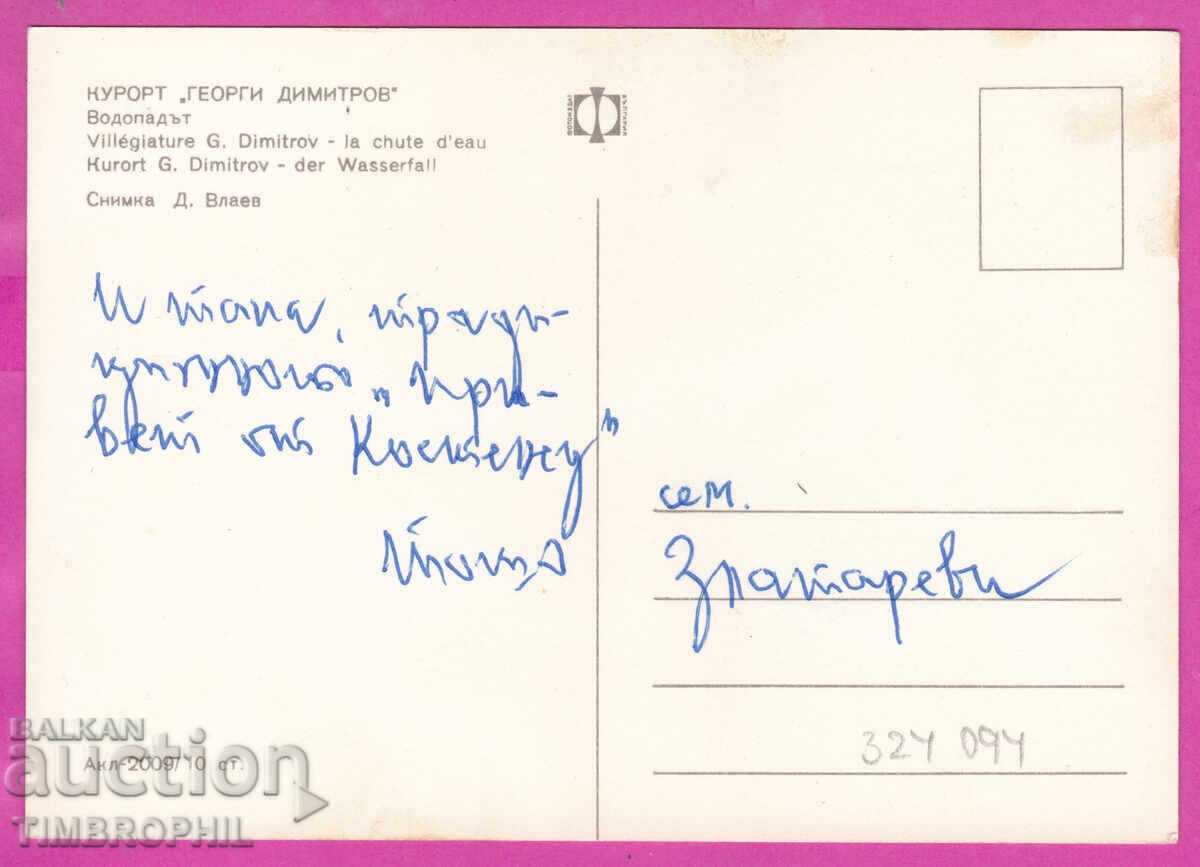 КУРОРТ „ГЕОРГИ ДИМИТРОВ"
Водопадът
Villégiature G. Dimitrov - la chute d'eau
Kurort G. Dimitrov - der Wasserfall
Снимка Д. Влаев
ФОТОИЗДАТ
БЪЛГАРИЯ
И така, тради-
ционният „При-
вет от Костенец"
сем.
Златареви
324 094
Акл-2009/10 ст.
BALKAN
auction
TIMBROPHIL